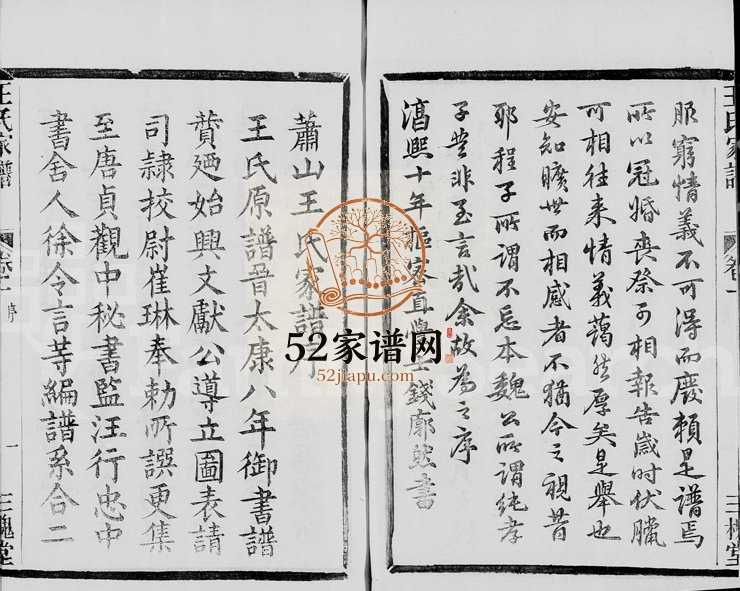 服窮情義不可得而廢頼是譜焉
所以冠婚喪祭可相報告歲時伏臘
可相往来情義藹然厚矣是舉也
安知曠世而相感者不猶今之視昔
耶程子所謂不忘本魏公所謂純孝
子豈非至言哉余故為之序
淳熙十年樞密直學士錢廓然書
王氏家譜
卷一
三槐堂
蕭山王氏家譜
王氏原譜晉太康八年御書譜
賛廼始興文獻公導立圖表請
司隷挍尉崔琳奉勅所譔更集
至唐貞觀中秘書監汪行忠中
書舍人徐令言䓁編譜系合二
王氏家譜
卷一
一
三槐堂
52家谱网
52jiapu.com